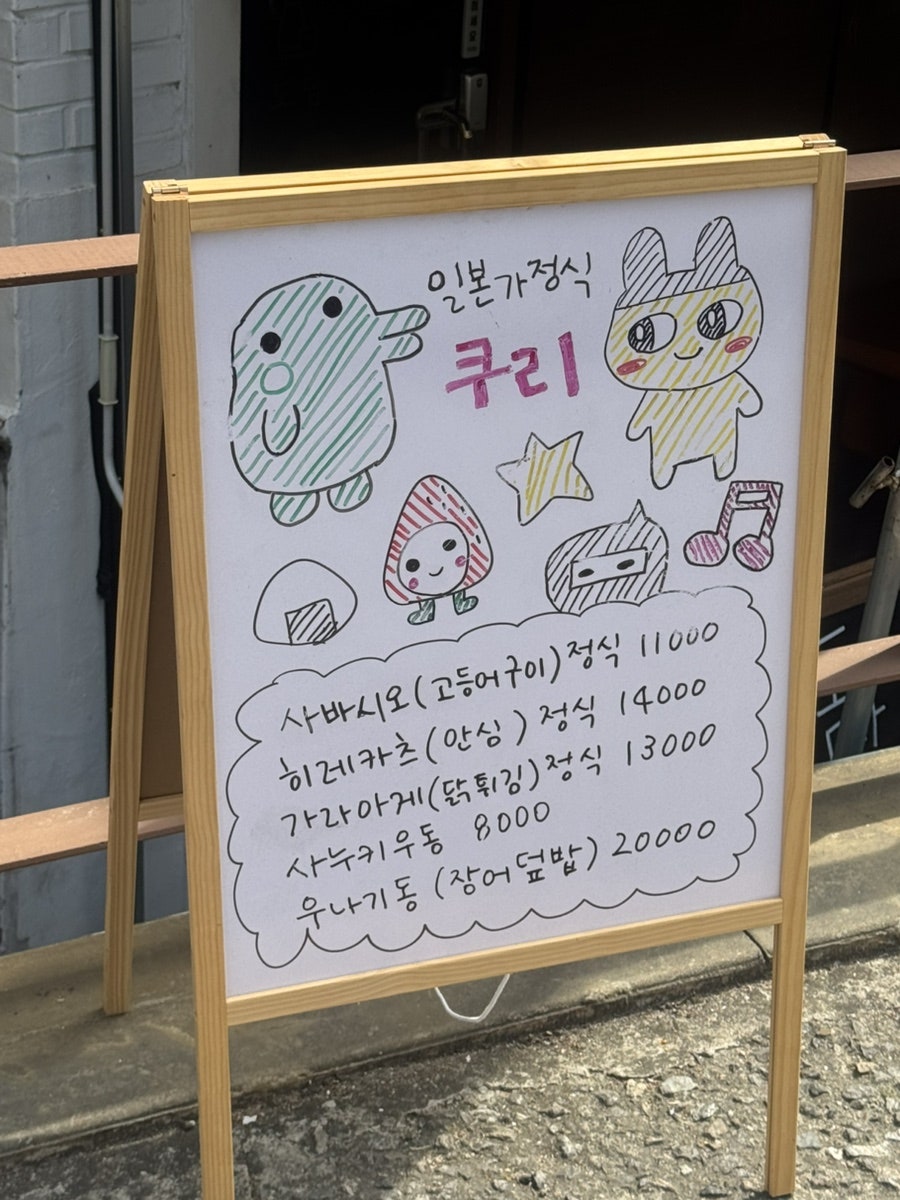 일본가정식
쿠리
사바시오(고등어구이)정식 11000
히레카츠(안심) 정식 14000
가라아게(닭튀김)정식 13000
사누키우동 8000
우나기동 (장어덮밥) 20000